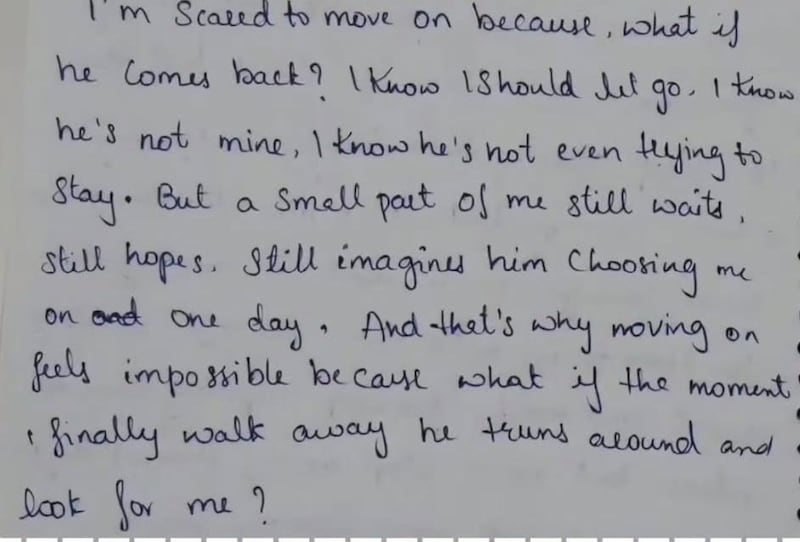 I'm Scared to move on because, what if
he Comes back? I Know I Should let go. I Know
he's not mine, I Know he's not even trying to
Stay. But a small part of me still waits,
still hopes. Still imagines him Choosing me
on one day. And that's why moving on
feels impossible because what if the moment
I finally walk away he truns around and
look for me?